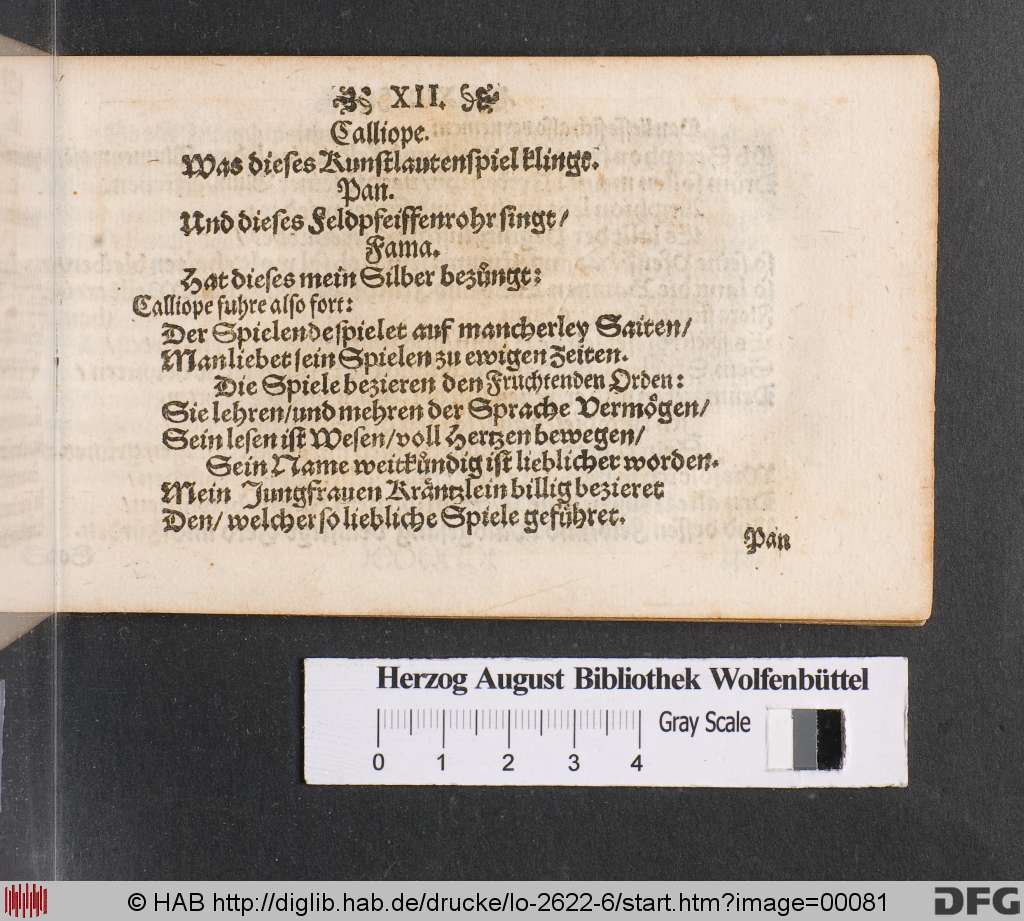 XII.
Calliope.
Was dieses Kunstlautenspiel klingt.
Pan.
Und dieses Feldpfeiffenrohr singt/
Fama.
Hat dieses mein Silber bezüngt:
Calliope fuhre also fort:
Der Spielende spielet auf mancherley Saiten/
Man liebet sein Spielen zu ewigen Zeiten.
Die Spiele bezieren den Fruchtenden Orden:
Sie lehren/und mehren der Sprache Vermögen/
Sein lesen ist Wesen/voll Hertzen bewegen/
Sein Name weitkündig ist lieblicher worden.
Mein Jungfrauen Kräntzlein billig bezieret
Den/ welcher so liebliche Spiele geführet.
Pan
Herzog August Bibliothek Wolfenbüttel
Gray Scale
0 1 2 3 4
© HAB http://diglib.hab.de/drucke/lo-2622-6/start.htm?image=00081
DFG